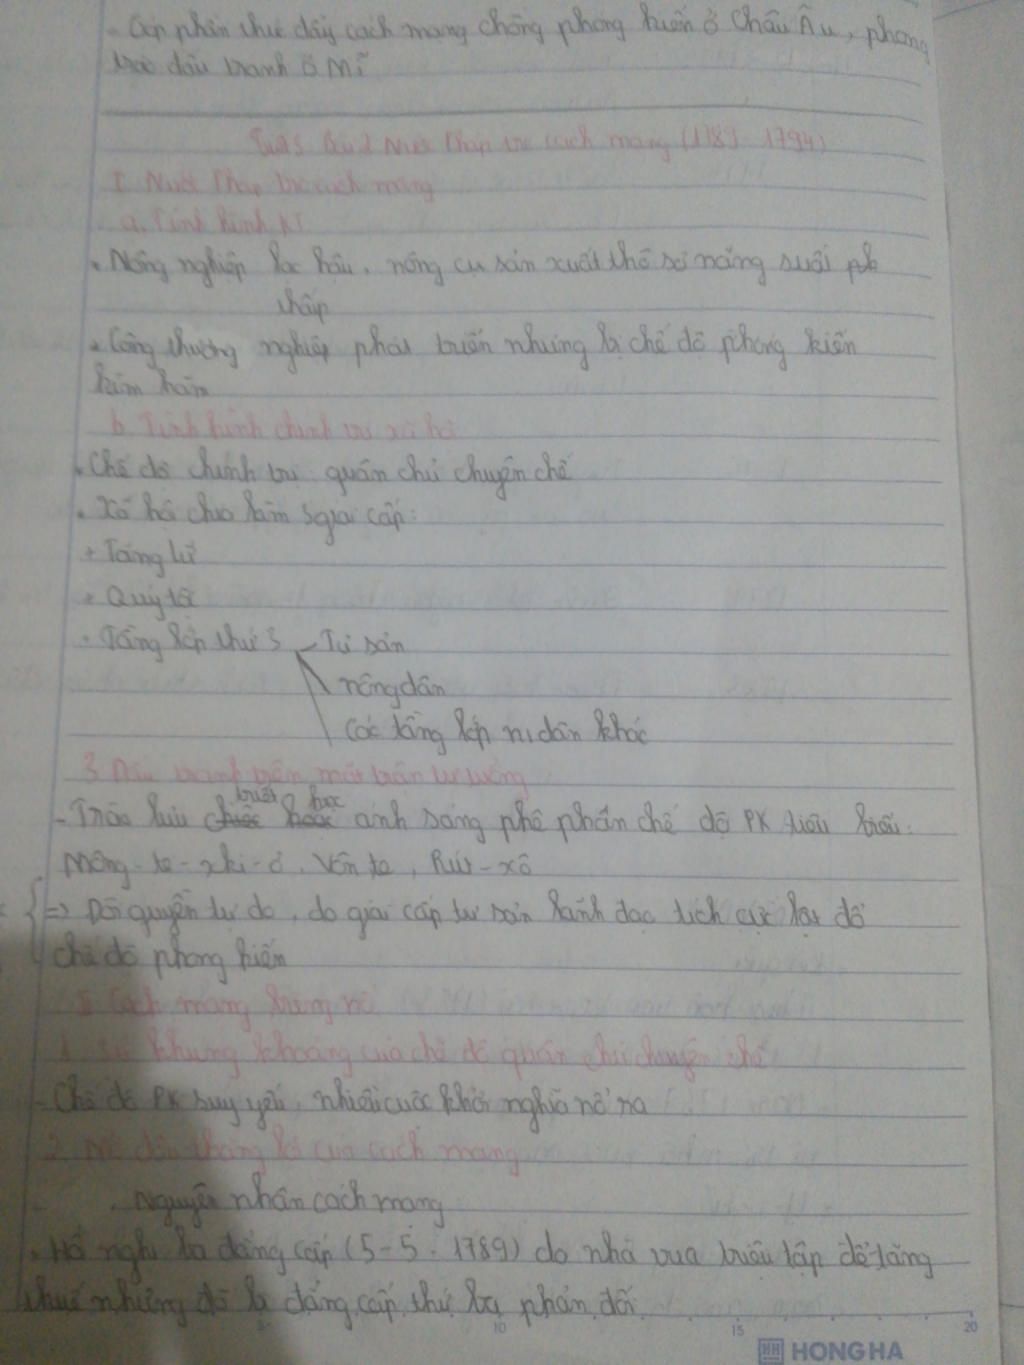 - Góp phần thúc đẩy cách mạng chống phong kiến ở Châu Âu, phong
trào đấu tranh ở Mĩ
Bài 2 Nước Pháp trc cách mạng (1789-1794)
I Nước Pháp trc cách mạng
a. Tình hình KT
• Nông nghiệp lạc hậu, nông cụ sản xuất thô sơ năng suất
thấp
• Công thương nghiệp phát triển nhưng bị chế độ phong kiến
kìm hãm
b Tình hình chính trị xã hội
• Chế độ chính trị: quân chủ chuyên chế
• Xã hội chia làm 3 giai cấp:
+ Tăng lữ
+ Quý tộc
• Tầng lớp thứ 3 - Tư sản
nông dân
Các tầng lớp n. dân khác
3. Đấu tranh trên mặt trận tư tưởng
triết học
- Trào lưu ánh sáng phê phán chế độ PK tiêu biểu:
Mông-te-xki-ơ, Vôn te, Rút-xô
=> Đòi quyền tự do, do giai cấp tư sản lãnh đạo lịch cực lật đổ
chế độ phong kiến
II Cách mạng bùng nổ
1. Sự khủng khoảng của chế độ quân chủ chuyên chế
- Chế độ PK suy yếu, nhiều cuộc khởi nghĩa nổ ra
2 Mở đầu thắng lợi của cách mạng
• Nguyên nhân cách mạng
• Hội nghị ba đẳng cấp (5-5-1789) do nhà vua triệu tập để tăng
thuế nhưng đã bị đẳng cấp thứ ba phản đối
10 15 20
HH HONG HA